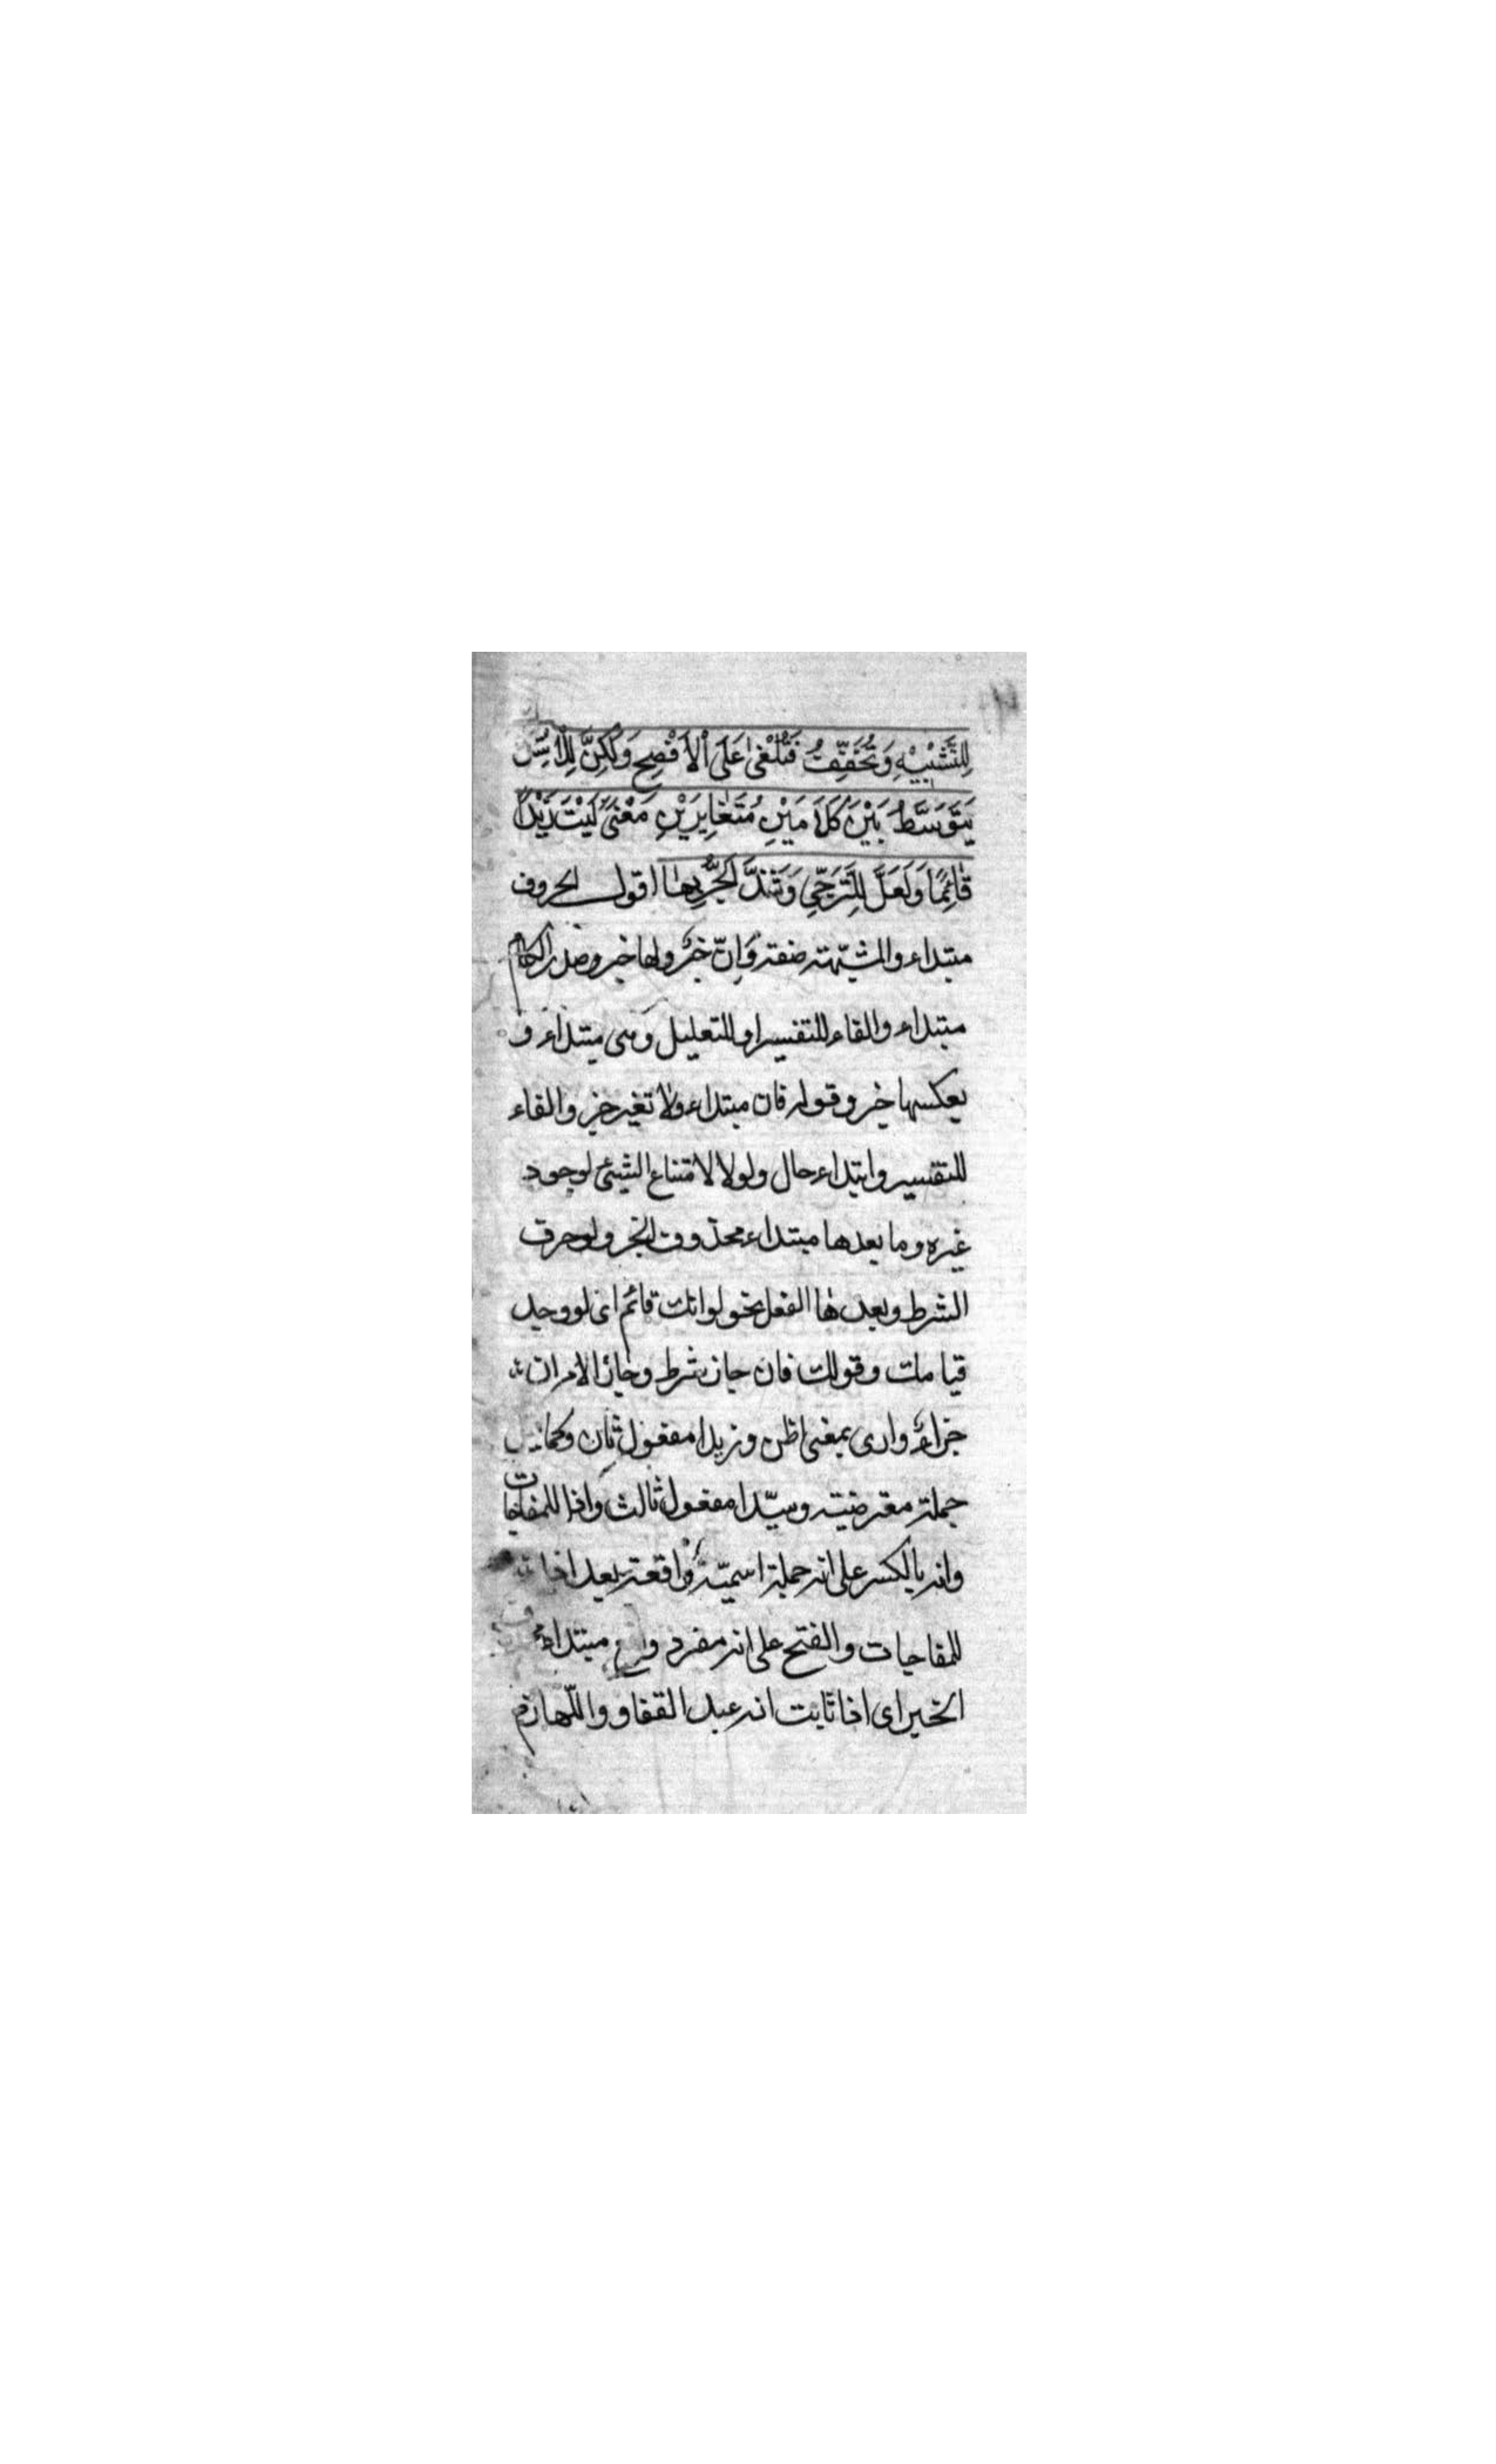 لِلتَّشْبِيْهِ وَتُخَفَّفُ فَتُلْغٰى عَلَى الْاَفْصَحِ وَلٰكِنَّ لِلْاِسْتِدْ
يَتَوَسَّطُ بَيْنَ كَلَامَيْنِ مُتَغَايِرَيْنِ مَعْنًى لَيْتَ زَيْدًا
قَائِمًا وَلَعَلَّ لِلتَّرَجِّي وَشَذَّ الْجَرُّ بِهَا اقول الحروف
مبتداء والمشبّهته صفته وَاِنّ خبرٌ ولها خبر وصدر الكلام
مبتداء والفاء للتفسير او للتعليل وَهى مبتداء و
بعكسها خبر وقوله فان مبتداء ولا تغير خبر والفاء
للتفسير وابتداء حال ولولا لامتناع الشيئ لوجود
غيره وما بعدها مبتداء محذوف الخبر ولو حرف
الشرط وبعدها الفعل نحو لو انك قائم اى لو وجد
قيامك وقولك فان جاز شرط وجاز الامران
جزاءٌ وارى بمعنى اظن وزيدا مفعول ثان وكما قيل
جملة معترضيته وسيّدا مفعول ثالث وَاذا للمفاجات
وانه بالكسر على انه جملة اسميّةٌ واقعة بعد اذا
للمفاجات والفتح على انه مفرد وقع مبتداء
الخبر اى اذا ثابت انه عبد القفاو واللّهازم